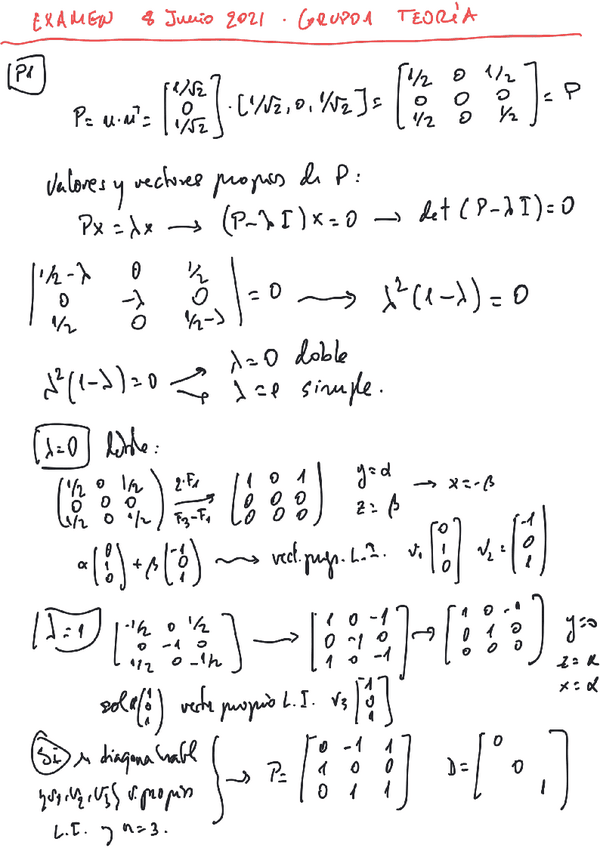 EXAMEN 8 Junio 2021 . GRUPO1 TEORÍA
P1
P = u·uᵀ = [1/√2; 0; 1/√2] · [1/√2, 0, 1/√2] = [1/2 0 1/2; 0 0 0; 1/2 0 1/2] = P
Valores y vectores propios de P:
Px = λx → (P-λI)x = 0 → det(P-λI) = 0
|1/2-λ 0 1/2; 0 -λ 0; 1/2 0 1/2-λ| = 0 → λ²(1-λ) = 0
λ²(1-λ) = 0 λ=0 doble
λ=1 simple.
λ=0 doble:
(1/2 0 1/2; 0 0 0; 1/2 0 1/2) 2·F1 F3-F1 → (1 0 1; 0 0 0; 0 0 0) y=α z=β → x=-β
α(0; 1; 0) + β(-1; 0; 1) → vect. prop. L.I. v₁[0; 1; 0] v₂=[-1; 0; 1]
λ=1 [-1/2 0 1/2; 0 -1 0; 1/2 0 -1/2] → [1 0 -1; 0 -1 0; 1 0 -1] → [1 0 -1; 0 1 0; 0 0 0] y=0 z=α x=α
(1; 0; 1) propio L.I. v₃[1; 0; 1]
Sí es diagonalizable → P = [0 -1 1; 1 0 0; 0 1 1] D = [0 0 1]
{v₁, v₂, v₃} v. propios
L.I. y n=3.